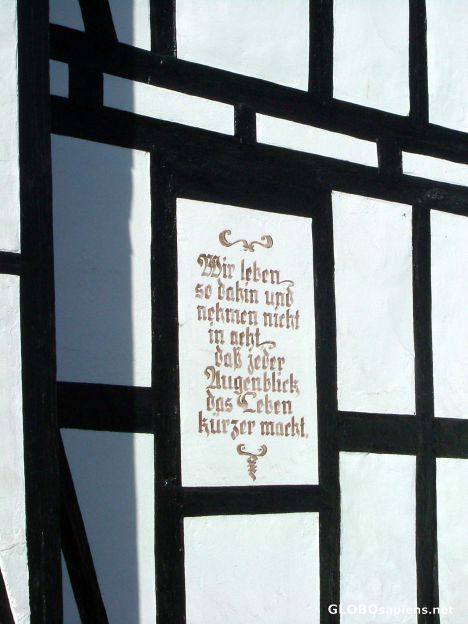 Wir leben
so dahin und
nehmen nicht
in acht,
daß jeder
Augenblick
das Leben
kürzer macht.
GLOBOsapiens.net